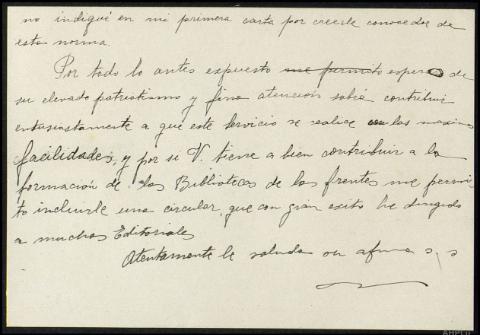 no indiqué en mi primera carta por creerle conocedor de
esta norma.
Por todo lo antes expuesto me permito espero de
su elevado patriotismo y fina atención sabrá contribuir
entusiastamente a que este Servicio se realice con las máximas
facilidades, y por si V. tiene a bien contribuir a la
formación de las Bibliotecas de los frentes me permi
to incluirle una circular, que con gran exito he dirigido
a muchas Editoriales
Atentamente le saluda su afmo s. s